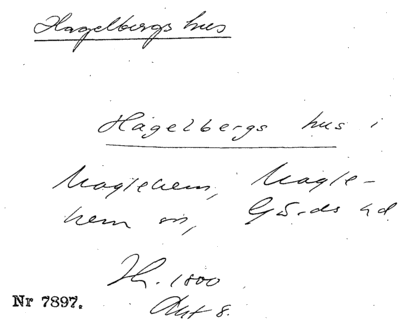 Hagelbergs hus
Hagelbergs hus i
Maglehem, Magle-
hem sn, Gärds hd
Jb. 1800
Akt 8.
Nr 7897.